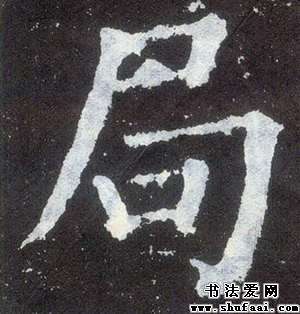 局
书法爱网
www.shufaai.com